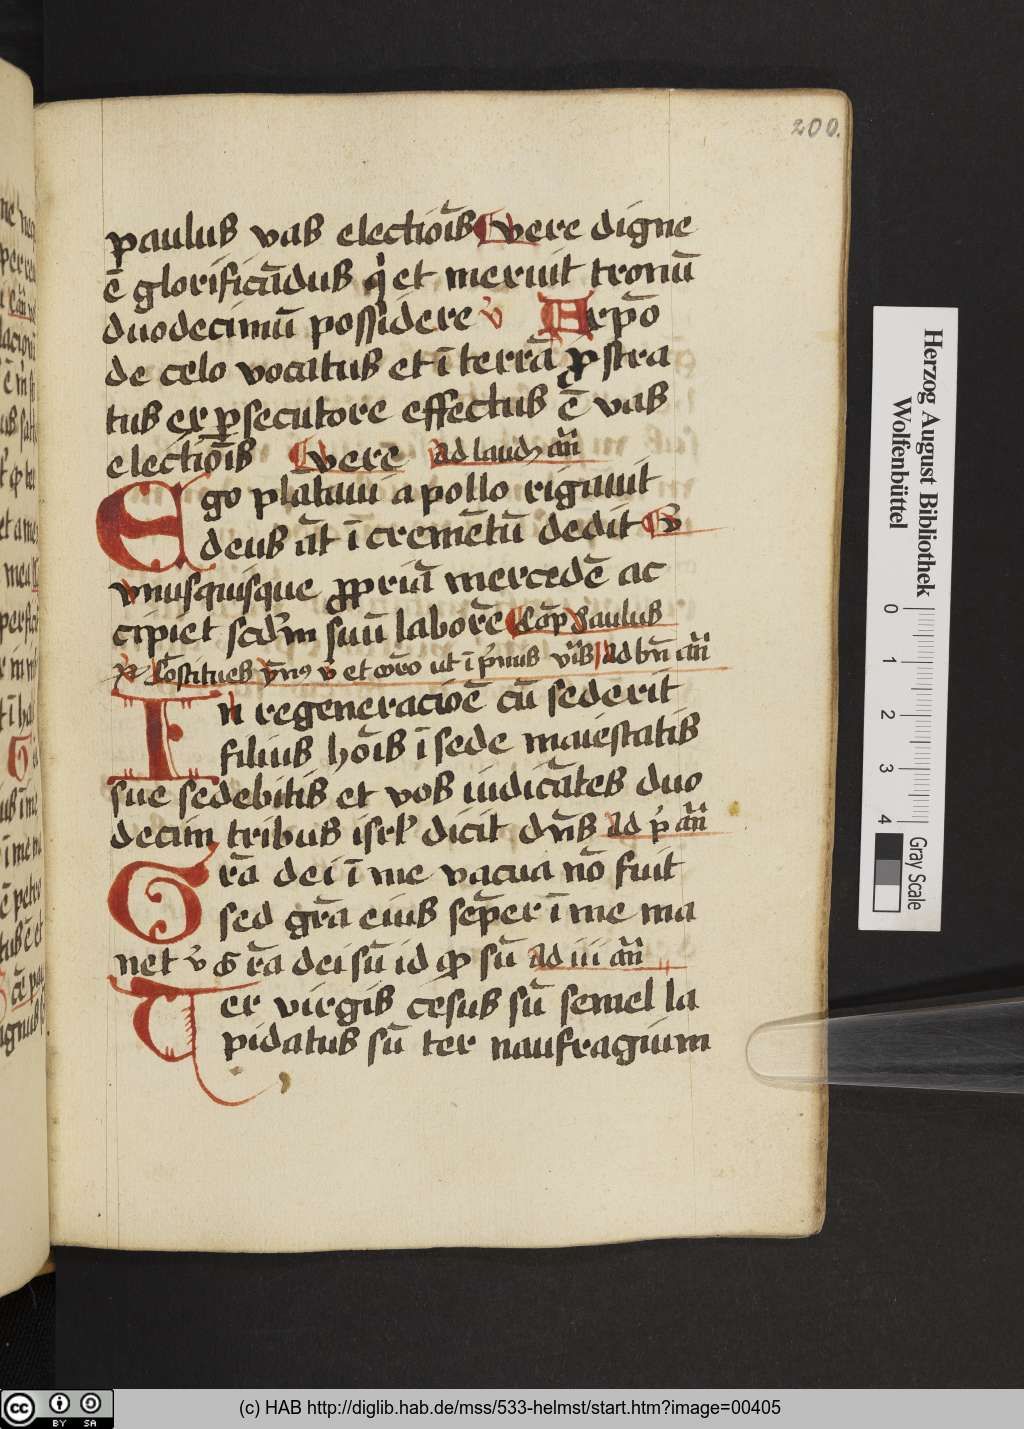 200.
paulus vas electiōis vere digne
ē glorificādus q̇ et meruit tronū
duodecimū possidere v̉ A xp̄o
de celo vocatus et ī terrā ꝓstra
tus ex ꝑsecutore effectus ē vas
electiōis vere ad laudꝫ an̄
Ego plātaui apollo rigauit
deus āt ī cremētū dedit
vnusquisque ꝓpriā mercedē ac
cipiet scd̓m suū laborē Cap̄ Paulus
Cōstitues et ī ad bn̄ an̄
In regeneracioē cū sederit
filius hōis ī sede maiestatis
sue sedebitis et vos iudicātes duo
decim tribus isrl̓ dicit dn̄s ad p̓ an̄
Grā dei ī me vacua nō fuit
sed grā eius semꝑ ī me ma
net v̉ Grā dei sū id qd̓ sū ad iii an̄
Ter virgis cesus sū semel la
pidatus sū ter naufragium
Herzog August Bibliothek
Wolfenbüttel
0 1 2 3 4
Gray Scale
cc BY SA
(c) HAB http://diglib.hab.de/mss/533-helmst/start.htm?image=00405